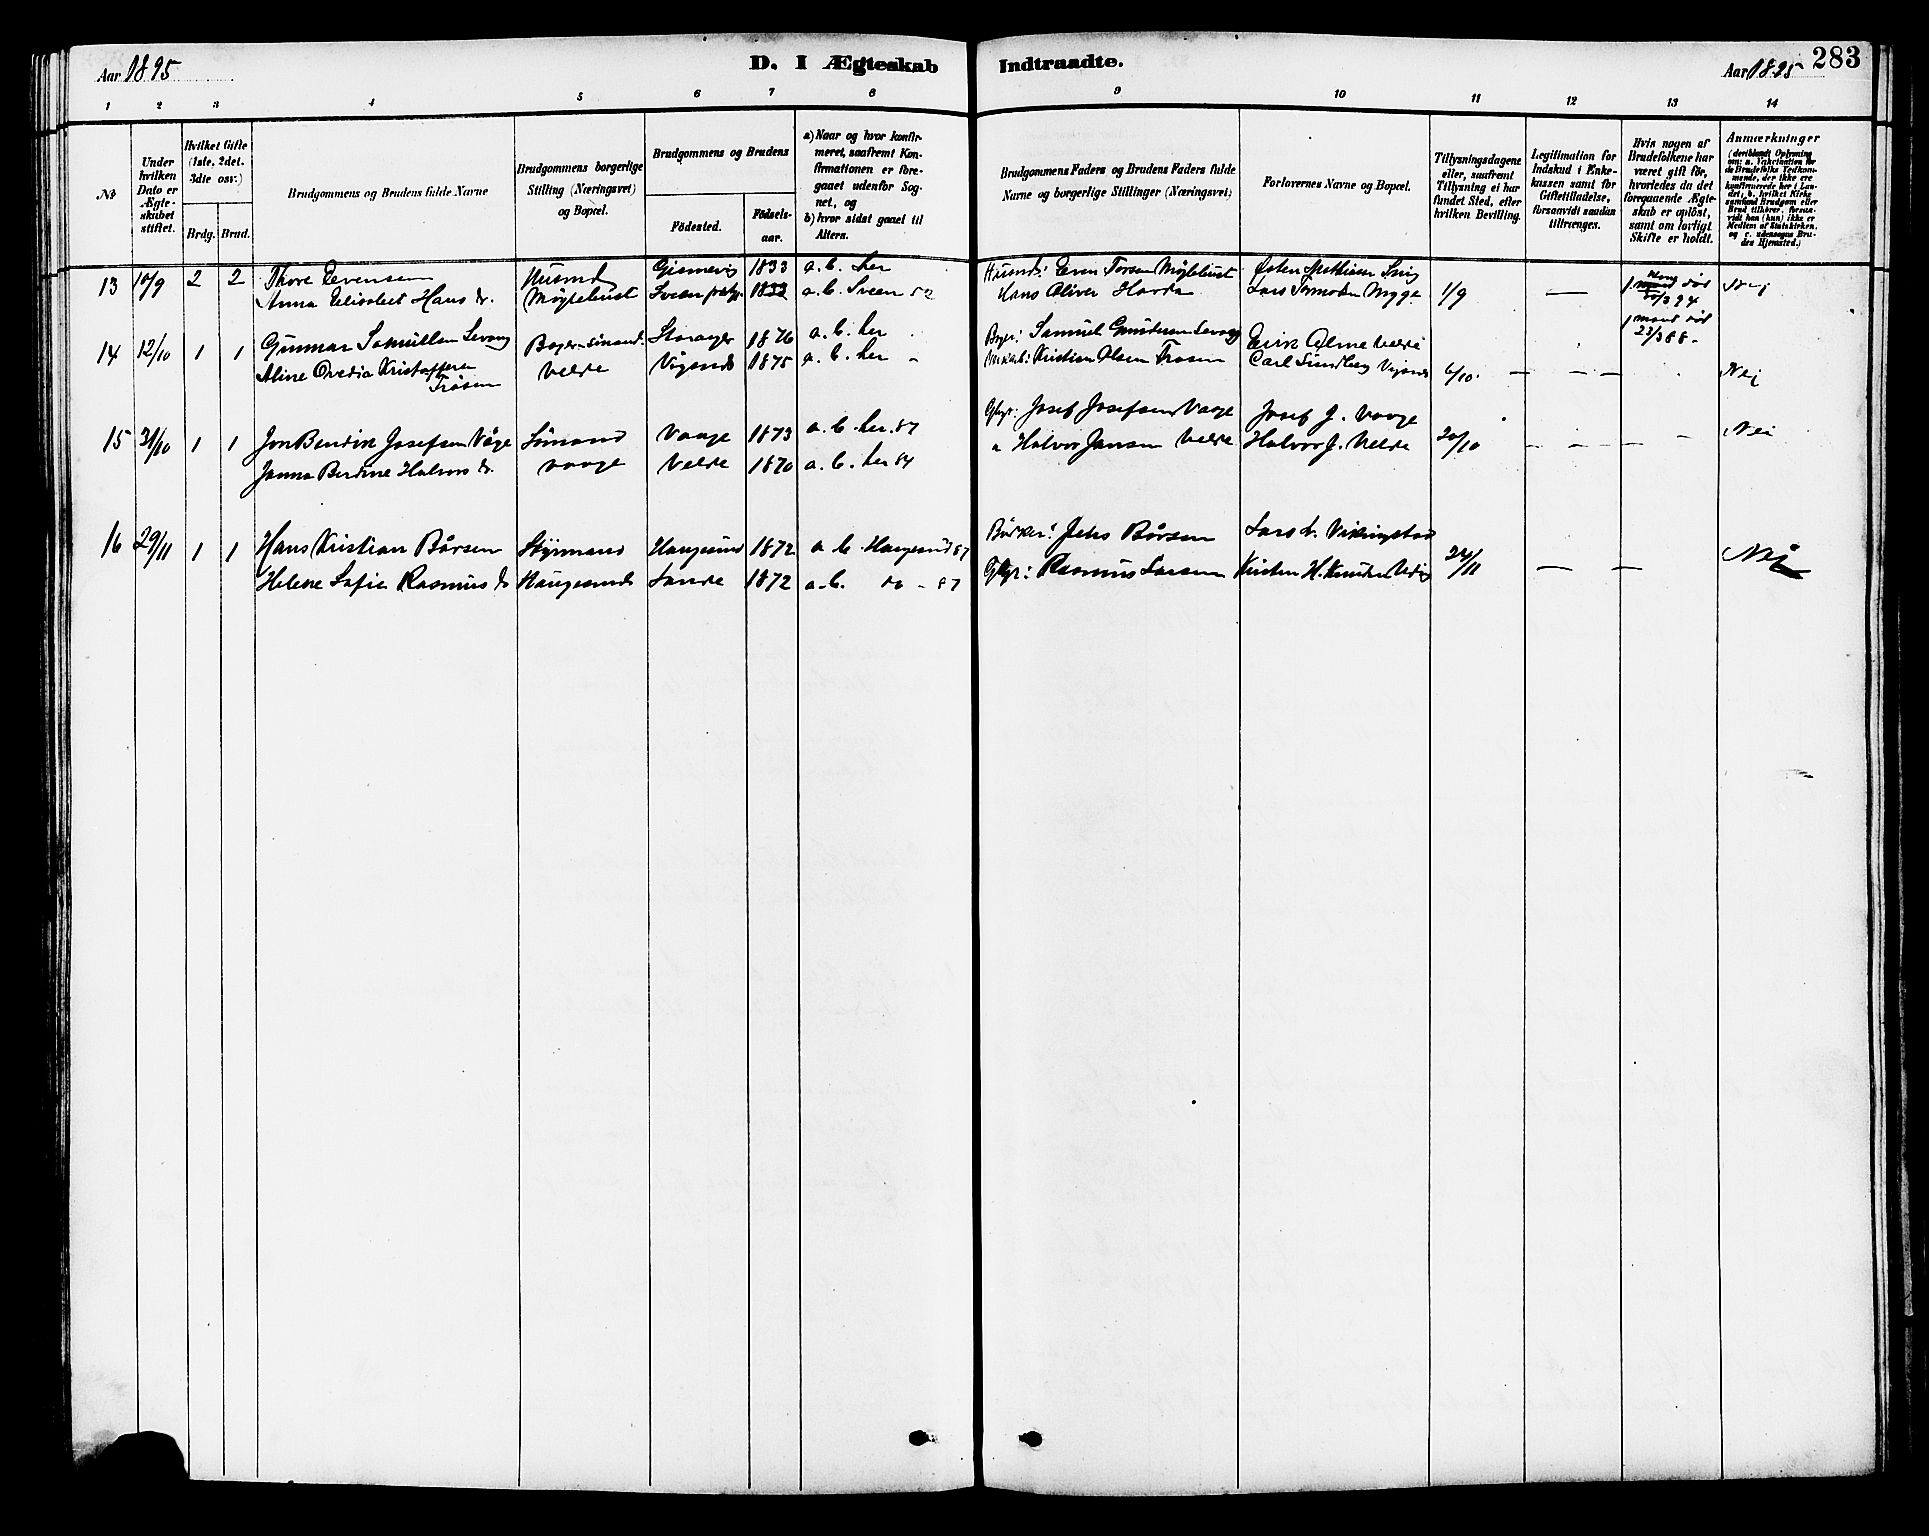 Aar 1895
D. I Ægteskab Indtraadte.
Aar 1895
283
1 2 3 4 5 6 7 8 9 10 11 12 13 14
No
Under hvilken Dato er Ægteskabet stiftet.
Hvilket Gifte (1ste, 2det, 3die osv.)
Brdg. Brud.
Brudgommens og Brudens fulde Navne
Brudgommens borgerlige Stilling (Næringsvei) og Bopæl.
Brudgommens og Brudens
Födested.
Födselsaar.
a) Naar og hvor konfirmeret, saafremt Konfirmationen er foregaaet udenfor Sognet, og
b) hvor sidst gaaet til Alters.
Brudgommens Faders og Brudens Faders fulde Navne og borgerlige Stillinger (Næringsvei)
Forlovernes Navne og Bopæl.
Tillysningsdagene eller, saafremt Tillysning ei har fundet Sted, efter hvilken Bevilling.
Legitimation for Indskud i Enkekassen samt for Giftetilladelse, forsaavidt saadan tiltrænges.
Hvis nogen af Brudefolkene har været gift för, hvorledes da det foregaaende Ægteskab er oplöst, samt om lovligt Skifte er holdt.
Anmærkninger
(deriblandt Oplysning om: a. Vakcination for de Brudefolks Vedkommende, der ikke ere konfirmerede her i Landet; b. hvilket Kirkesamfund Brudgom eller Brud tilhører, forsaavidt han (hun) ikke er Medlem af Statskirken, og c. udensogns Brudes Hjemsted.)
13 10/9 2 2 Thore Evensen Husmd Gismervig 1833 a. b. her Husmd: Even Torsen Möglebust Østen Mathisen
Anna Elisabet Hans d. Möglebust Sveen 1833 a. b. Sveen 52 Hans Oliver Lars 1/9 — död Nei
/3 94
1 mand död 23/3 88.
14 12/10 1 1 Gunnar Samuelsen Sevaag Velde Stavanger 1876 a. b. her Samuel Gundersen Sevaag Erik Velde
Aline Ovedia Kristoffersen Vigsnes 1875 a. b. her Kristian Olsen Carl Sundberg Vigsnes 6/10. — — — Nei
15 31/10 1 1 Jon Bendix Josefsen Våge Sömand Vaage 1873 a. b. her. 87 Gbgr: Josef Josefsen Vaage Josef J. Vaage
Janna Berdine Halvors d. Vaage Velde 1870 a. b. her 84 " Halvor Jansen Velde Halvor J. Velde 20/10 — — — — Nei
16 29/11 1 1 Hans Kristian Börsen Styrmand Haugesund 1872 a. b. Haugesund 87 Jens Börsen Lars L. Vikingstad
Helene Sofie Rasmus d. Haugesund Sande 1872 a. b. do - 87 Gbgr: Rasmus Larsen Kristen H. Knudsen 24/11 — — Nei